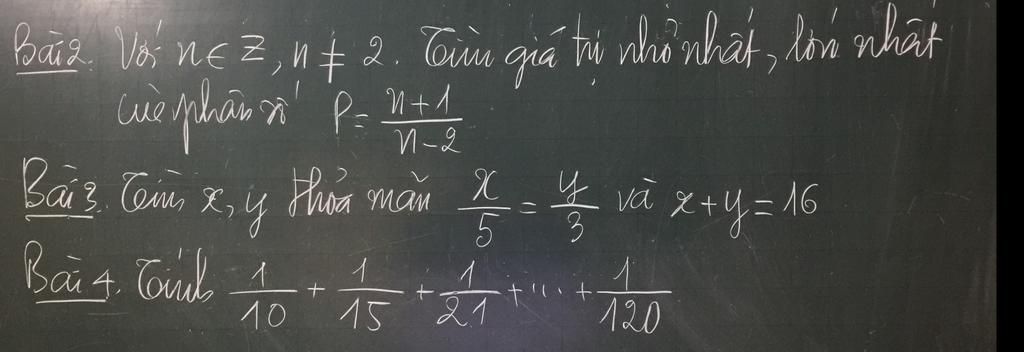 Bài 2. Với n ∈ Z, n ≠ 2. Tìm giá trị nhỏ nhất, lớn nhất
của phân số P = \frac{n+1}{n-2}
Bài 3. Tìm x, y thỏa mãn \frac{x}{5} = \frac{y}{3} và x + y = 16
Bài 4. Tính \frac{1}{10} + \frac{1}{15} + \frac{1}{21} + ... + \frac{1}{120}